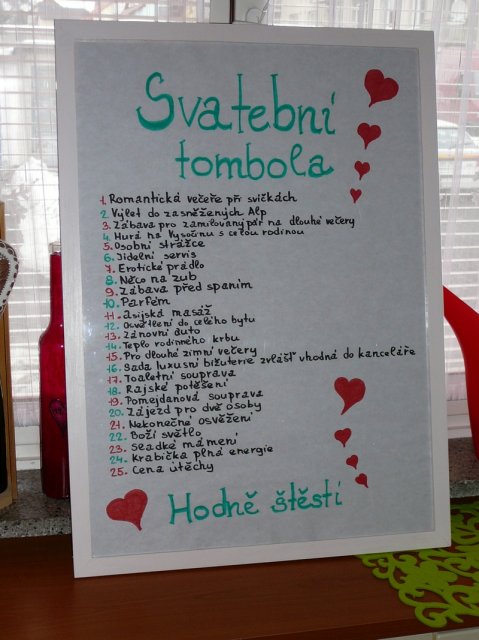 Svatební
tombola
1. Romantická večeře při svíčkách
2. Výlet do zasněžených Alp
3. Zábava pro zamilovaný pár na dlouhé večery
4. Hurá na Vysočinu s celou rodinou
5. Osobní strážce
6. Jídelní servis
7. Erotické prádlo
8. Něco na zub
9. Zábava před spaním
10. Parfém
11. Asijská masáž
12. Osvětlení do celého bytu
13. Zánovní auto
14. Teplo rodinného krbu
15. Pro dlouhé zimní večery
16. Sada luxusní bižuterie zvlášť vhodná do kanceláře
17. Toaletní souprava
18. Rajské potěšení
19. Pomejdanová souprava
20. Zájezd pro dvě osoby
21. Nekonečné osvěžení
22. Boží světlo
23. Sladké mámení
24. Krabička plná energie
25. Cena útěchy
Hodně štěstí